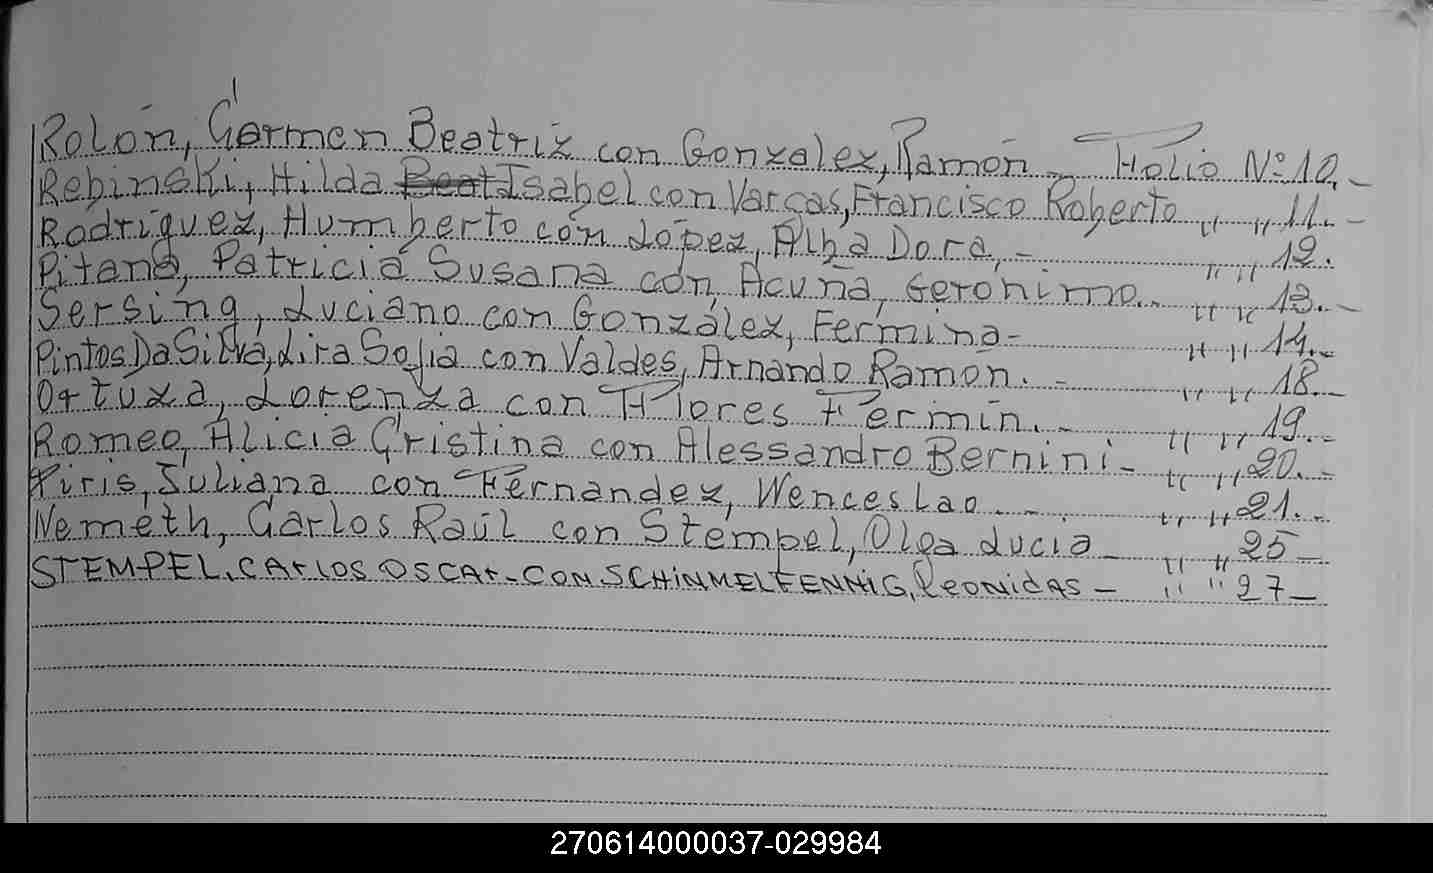 Rolón, Carmen Beatriz con Gonzalez, Ramón - Folio Nº 10.-
Rebinski, Hilda Isabel con Vargas, Francisco Roberto " " 11.-
Rodríguez, Humberto con López, Alba Dora, - " " 12.
Pitana, Patricia Susana con, Acuña, Geronimo. " " 13.-
Sersing, Luciano con González, Fermina - " " 14.-
Pintos Da Silva, Lira Sofia con Valdes, Arnando Ramón. - " " 18.-
Ortuza, Lorenza con Flores Fermín. - " " 19.-
Romeo, Alicia Cristina con Alessandro Bernini - " " 20.-
Piris, Juliana con Fernandez, Wenceslao. - " " 21.-
Nemeth, Carlos Raúl con Stempel, Olga Lucia - " " 25 -
STEMPEL, CARLOS OSCAR - CON SCHINMELFENNIG, Leonidas - " " 27 -
270614000037-029984